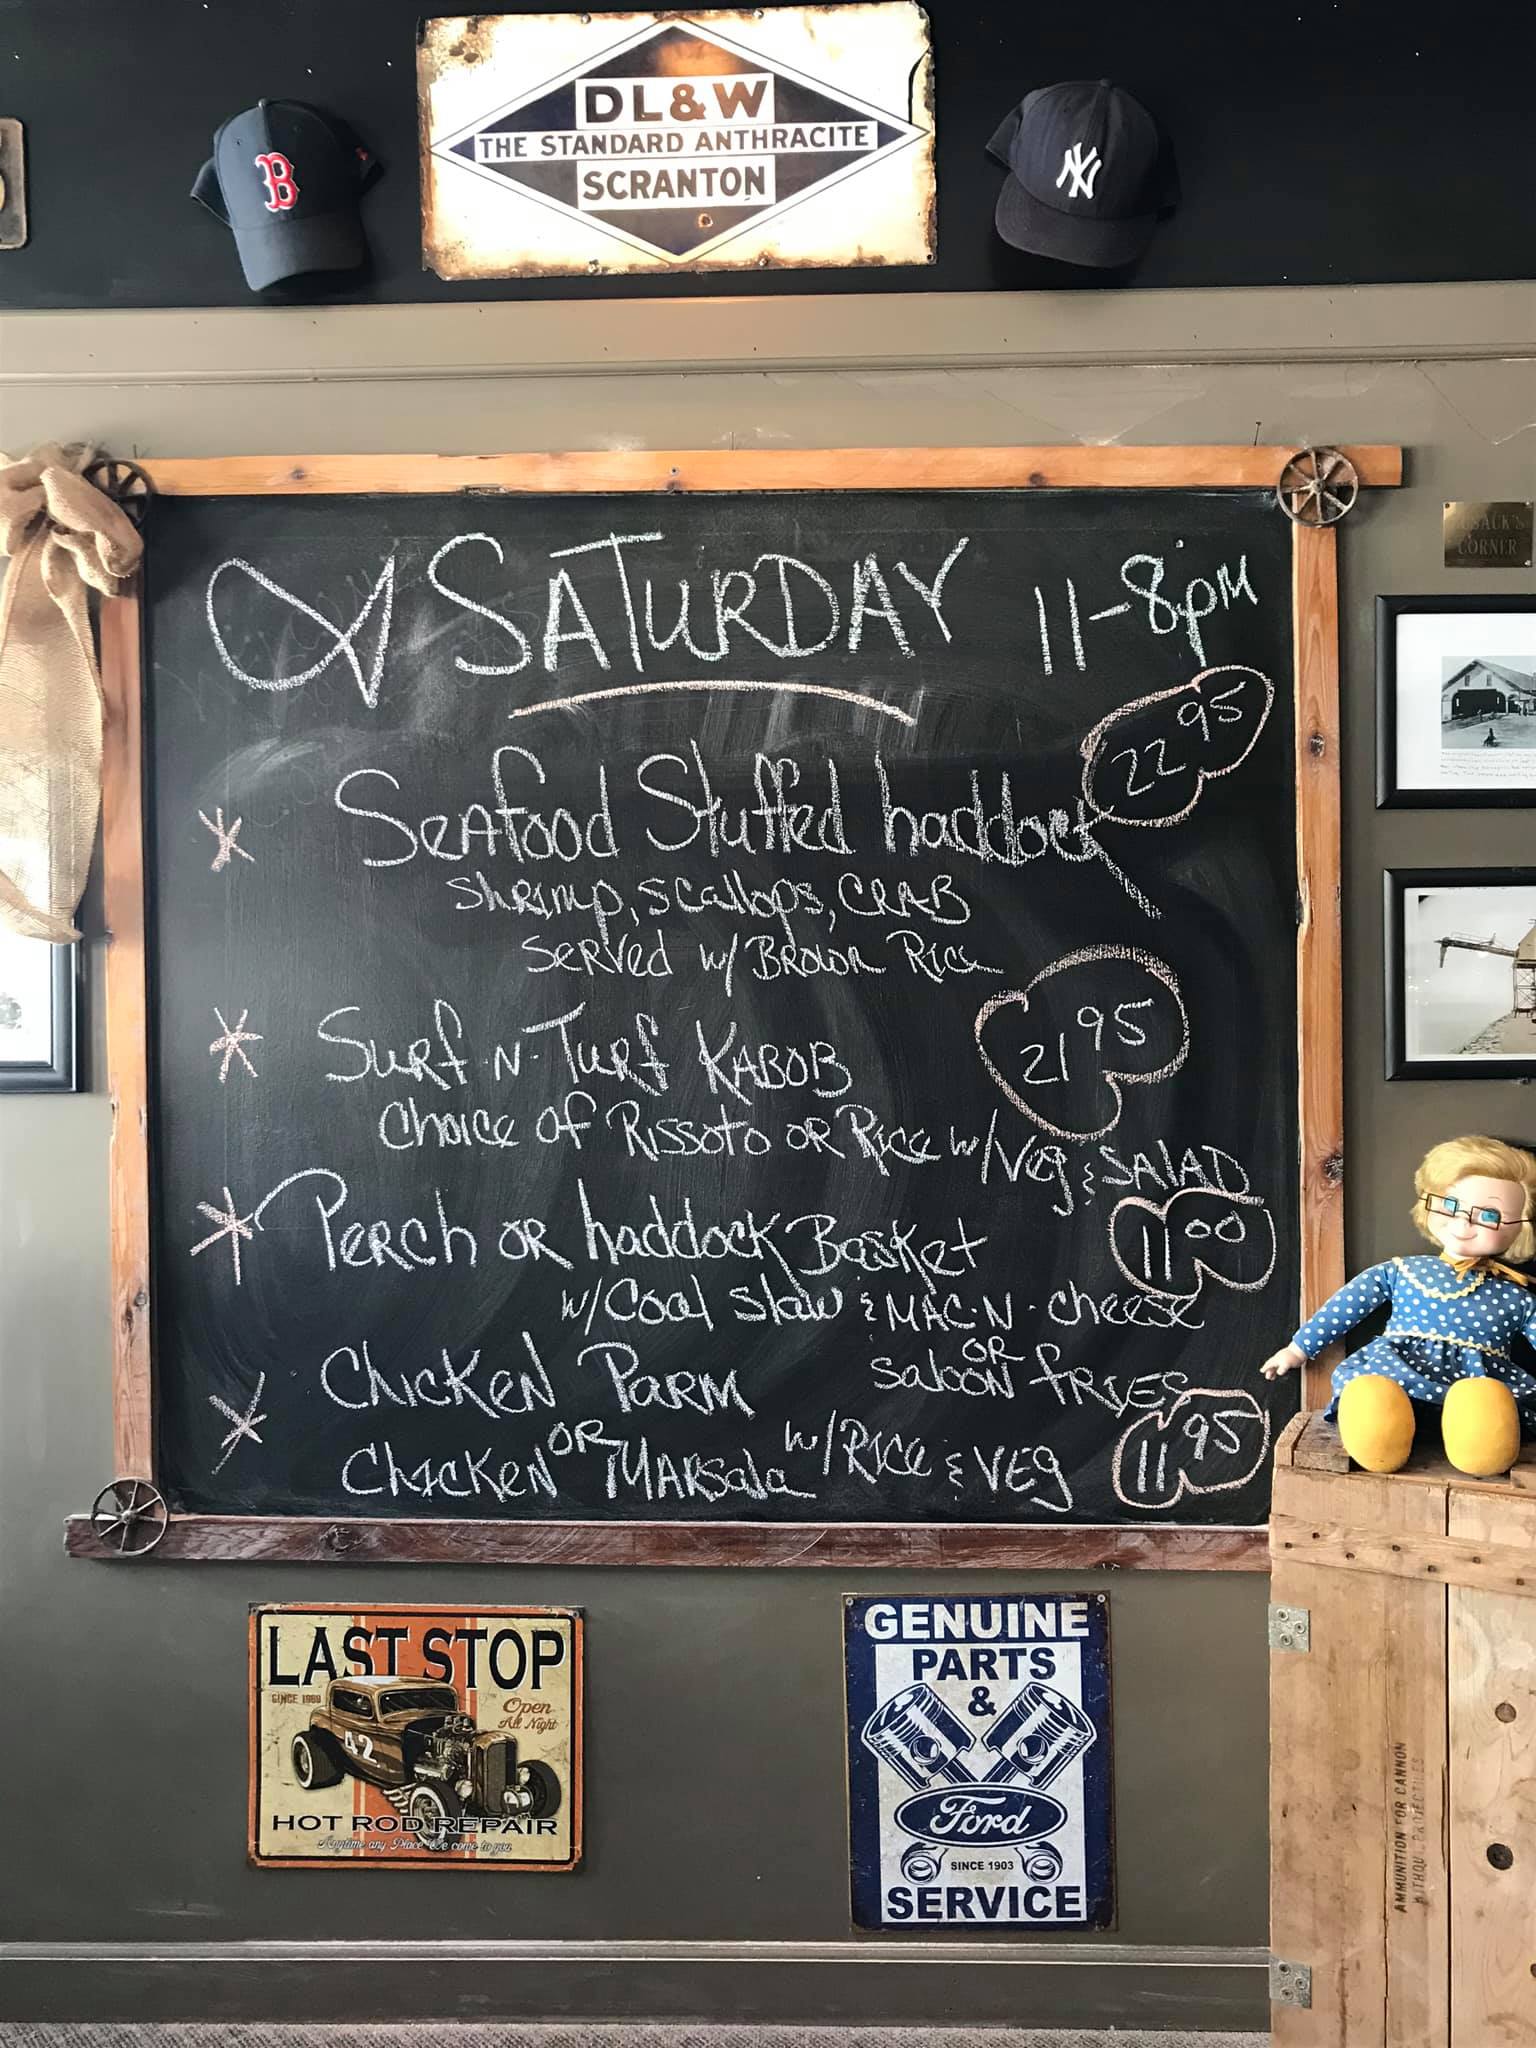 B
DL&W
THE STANDARD ANTHRACITE
SCRANTON
NY
SATURDAY 11-8pm
Seafood Stuffed haddock 22 95
Shrimp, Scallops, CRAB
Served w/ Brown Rice
Surf-N-Turf KABOB 21 95
Choice of Rissoto OR Rice w/Veg & SALAD
Perch OR haddock Basket 11 00
w/Coal slaw & MAC-N-cheese
OR
Saloon fries
Chicken Parm
OR
Chicken Marsala w/Rice & Veg 11 95
CORNER
LAST STOP
SINCE
Open
All Night
42
HOT ROD REPAIR
Anytime any Place We come to you
GENUINE
PARTS
&
Ford
SINCE 1903
SERVICE
AMMUNITION FOR CANNON
WITHOUT PROJECTILES